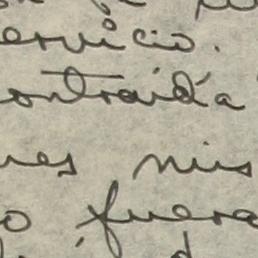 ervicio.
ontraida
ues mis
o fuera